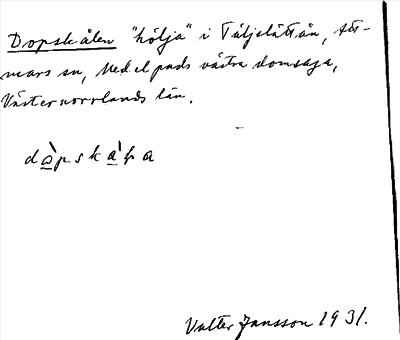 Dopskålen "hölja" i Täljeslättån, Att-
mars sn, Medelpads västra domsaga,
Västernorrlands län.
Valter Jansson 1931.